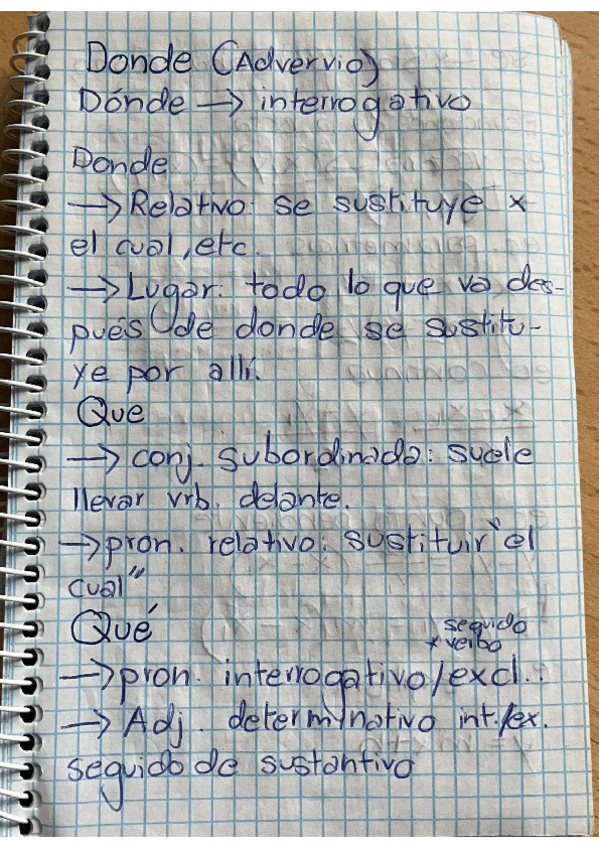 Donde (Advervio)
Dónde → interrogativo
Donde
→ Relativo: se sustituye x
el cual, etc.
→ Lugar: todo lo que va des-
pués de donde se sustitu-
ye por allí.
Que
→ conj. subordinada: suele
llevar vrb. delante.
→ pron. relativo: sustituir "el
cual"
Qué
* seguido
verbo
→ pron. interrogativo/excl.:
→ Adj. determinativo int./ex.
seguido de sustantivo